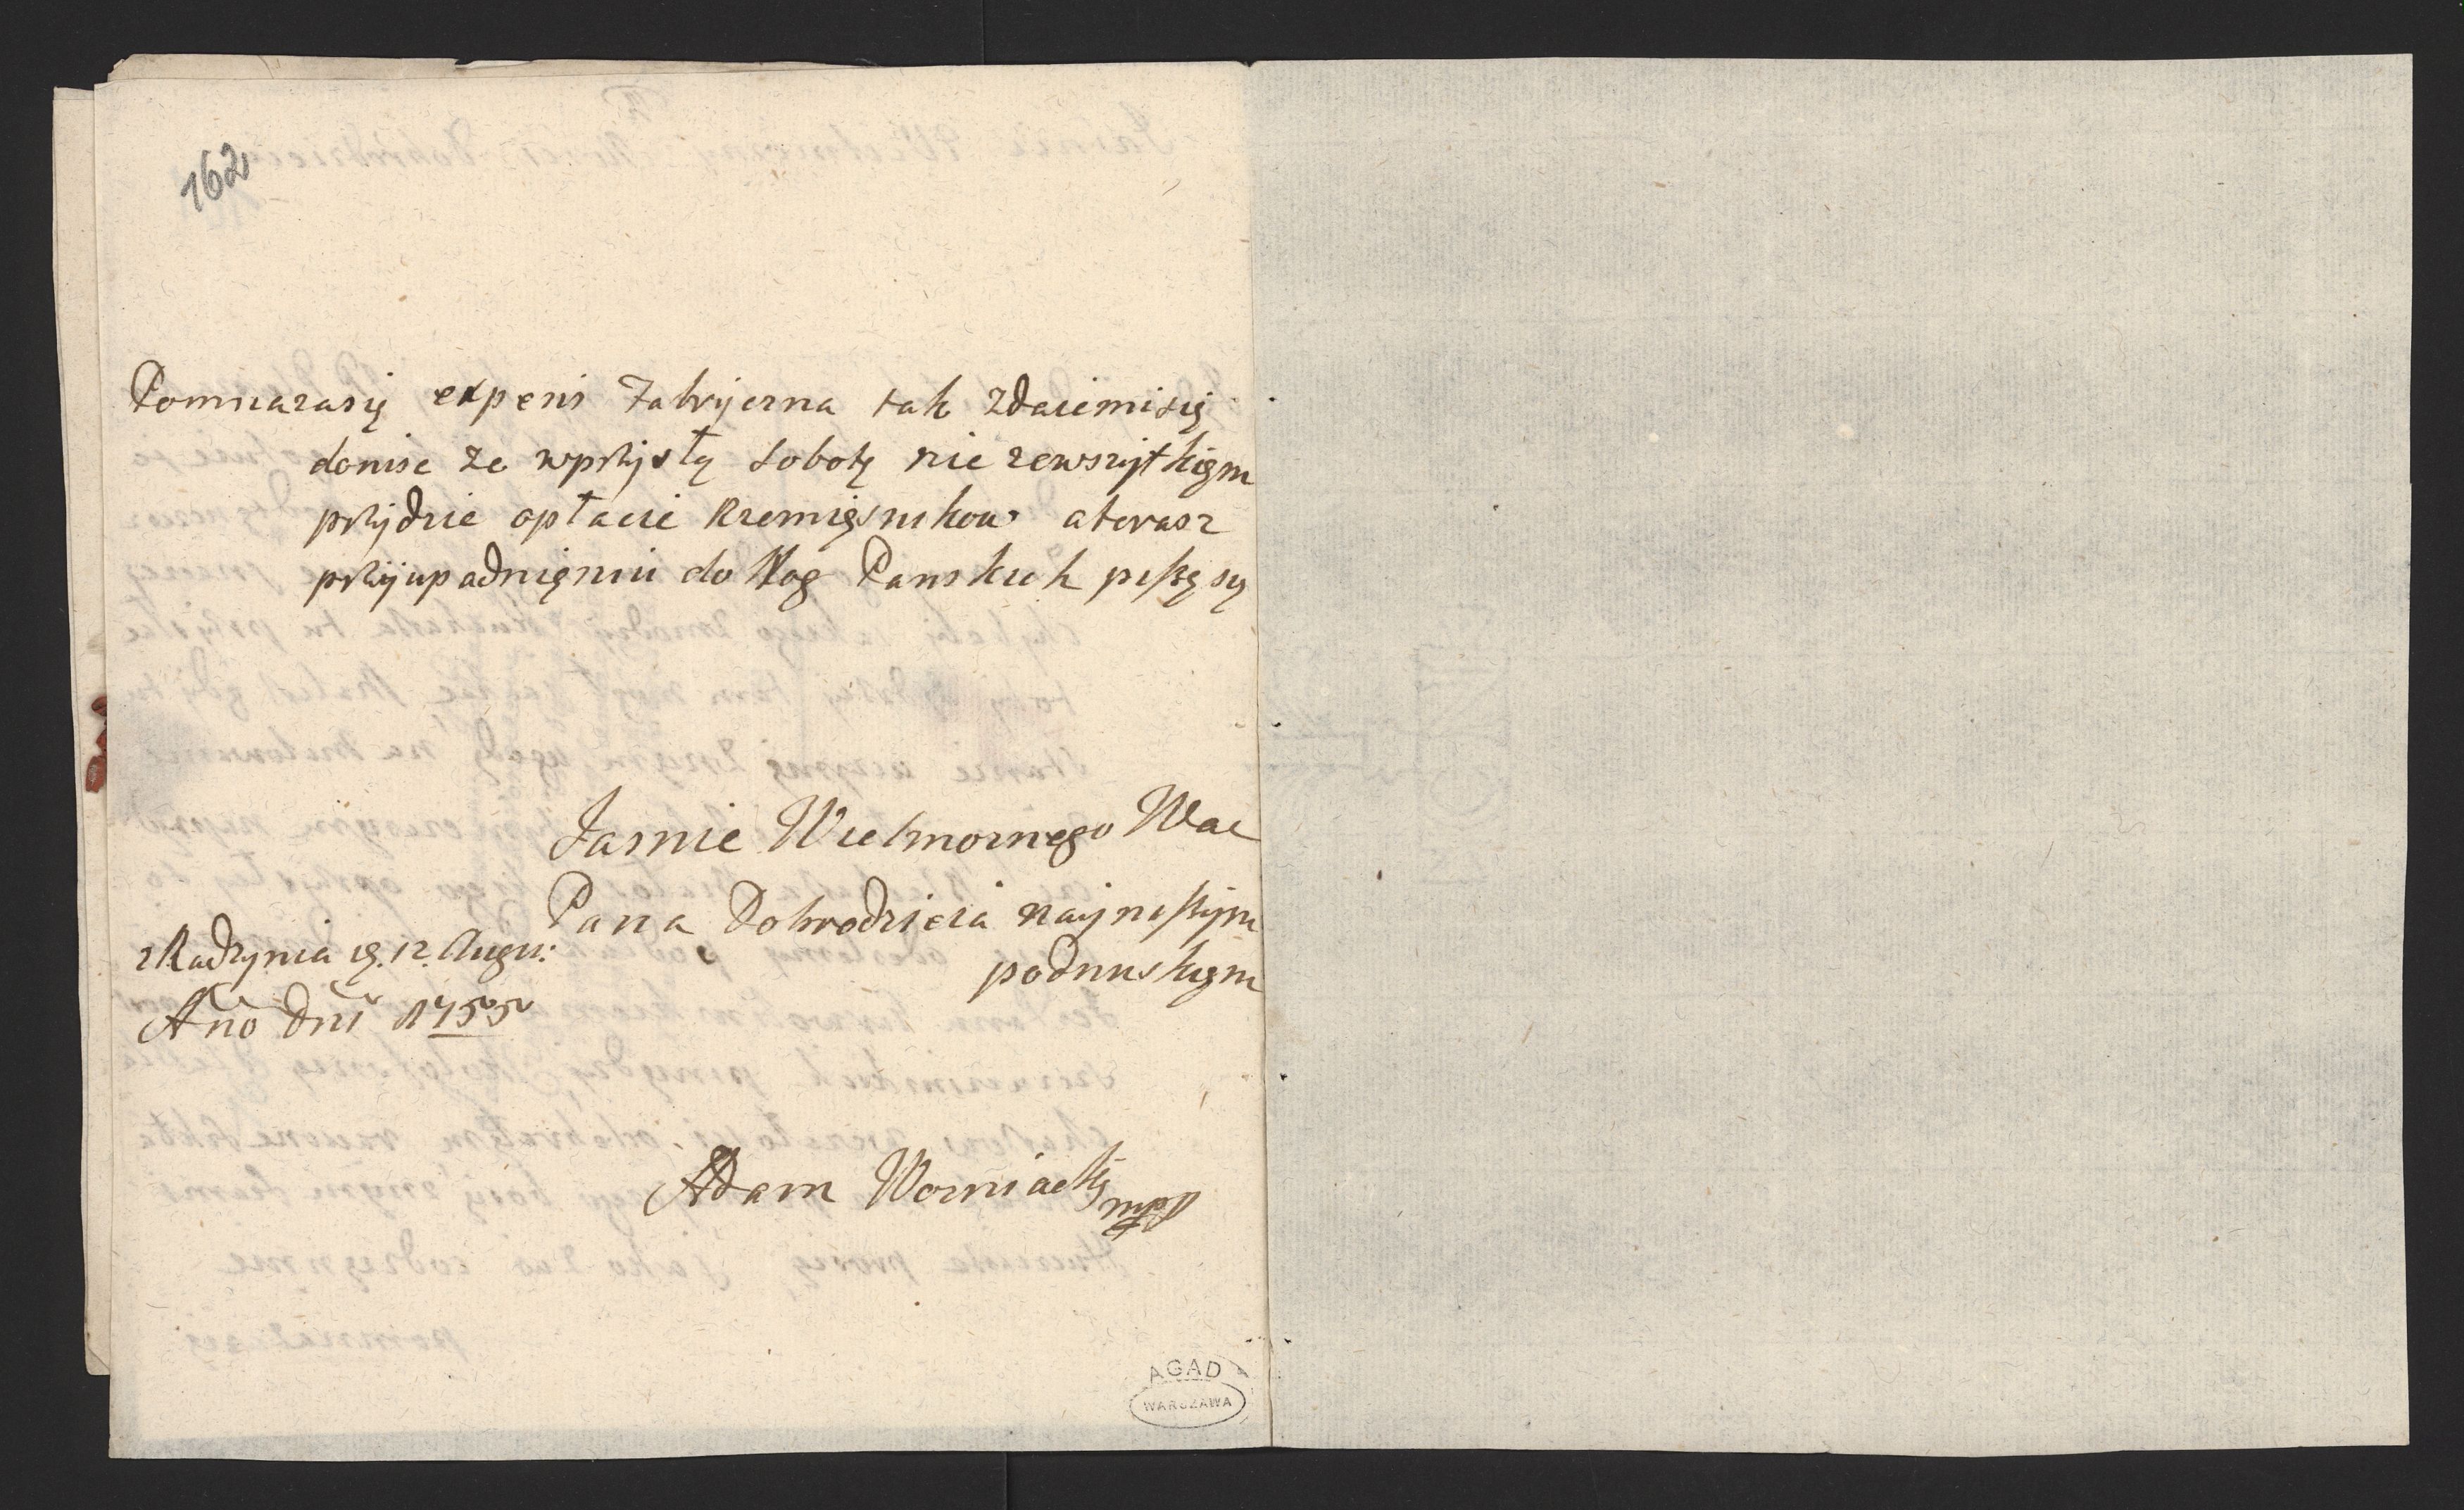 162
Pomnazasię expens Fabryczna tak zdaiemisię
donise ze wprzysłą sobotę nie zewszyſtkięm
przÿdzie opłacic Rzemięsnikow aterasz
przÿupadnięniu do Nog Panskich piszę się
Jasnie Wielmoznego Wac
Pana Dobrodzieia nayniszÿm
podnuskięm
z Radzynia ig. 12. Augu:
Año Dni 1755
Adam Wozniacky
mpp
AGAD
WARSZAWA